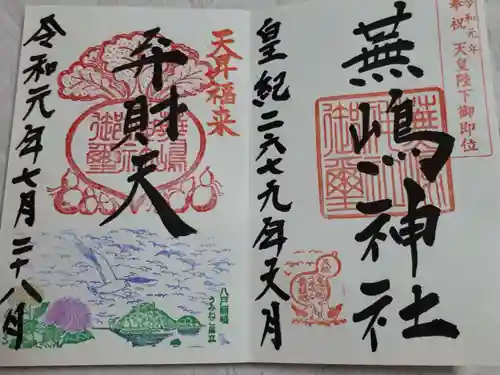 奉祝 令和元年
天皇陛下御即位
蕪嶋神社
皇紀二六七九年文月
天昇福来
弁財天
令和元年七月二十八日
八戸蕪嶋
うみねこ巣立